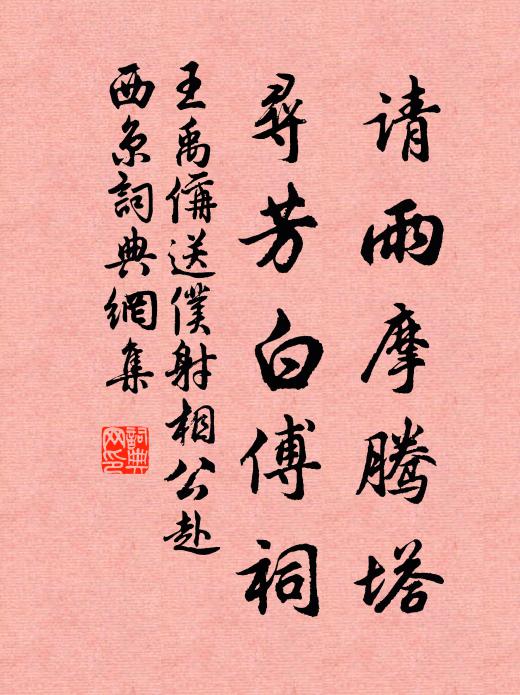 请雨摩腾塔
尋芳白傅祠
王禹偁送僕射相公赴
西京詞典網集
詞典
网印